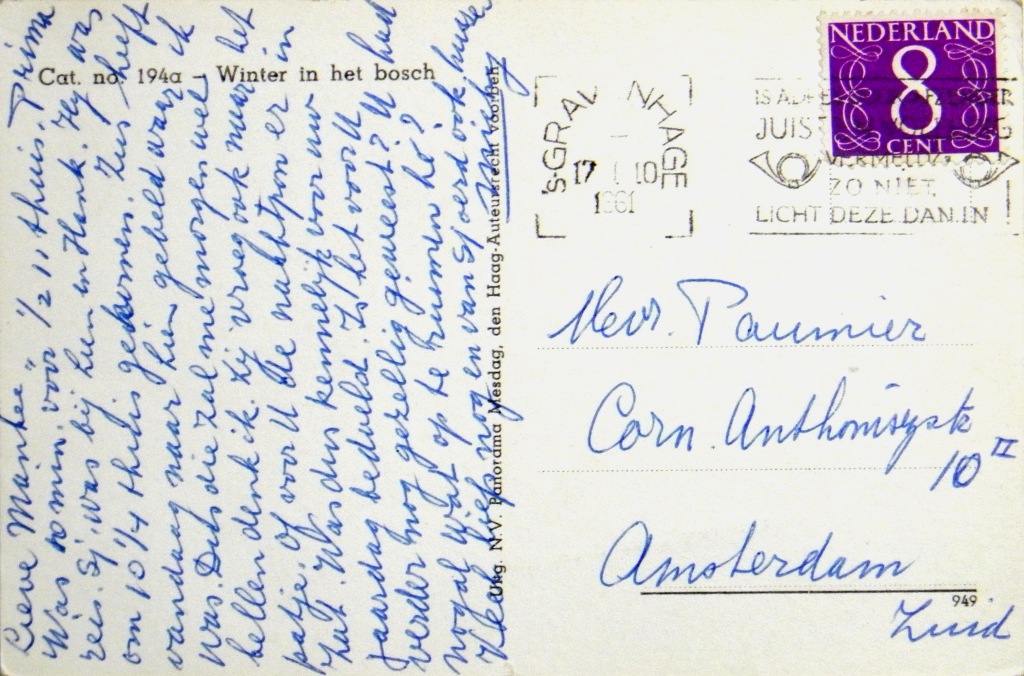 Cat. no. 194a - Winter in het bosch
Lieve Mantee"
Was 50 min. voor 1/2 11 thuis. Prima
reis. Sj. was bij Lien en Henk. Hij was
om 10 1/4 thuis gekomen. Zus heeft
vandaag naar Lien gebeld waar ik
was. Dus die zal me morgen wel
bellen denk ik. Zij vroeg ook naar het
pakje. Of voor U de nachtpon er in
zat. Was dus kennelijk voor uw
jaardag bedoeld. Is het voor U
verder nog gezellig geweest? U had
nogal wat op te ruimen hè?
Veel liefs nog en van Sjoerd ook,
Uitg. N.V. Panorama Mesdag, den Haag-Auteursrecht voorbeh.
'S-GRAVENHAGE
17 10
1961
JUIST
VERMELD?
ZO NIET,
LICHT DEZE DAN IN
NEDERLAND
8
CENT
Mevr. Paumier
Corn. Anthoniszstr
10 II
Amsterdam
949
Zuid